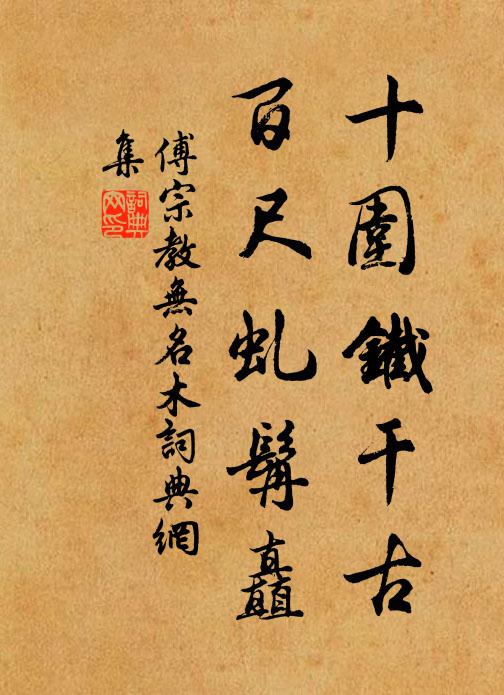 十圍鐵干古
百尺虬髯矗
傅宗教無名木詞典網
集
詞典网印